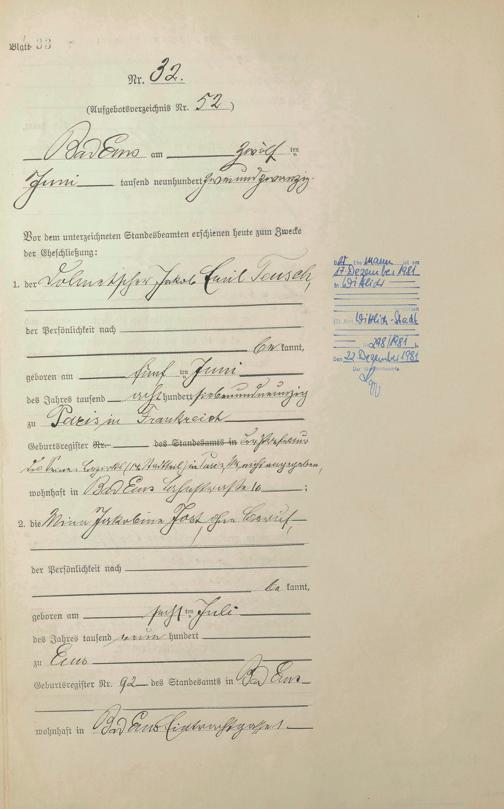 Blatt 33
Nr. 32.
(Aufgebotsverzeichnis Nr. 52)
Bad Ems am zwölf ten
Juni tausend neunhundert zweiundzwanzig.
Vor dem unterzeichneten Standesbeamten erschienen heute zum Zwecke
der Eheschließung:
1. der Dolmetscher Jakob Emil Teusch,
der Persönlichkeit nach
bekannt,
geboren am fünften Juni
des Jahres tausend achthundert siebenundneunzig
zu Paris in Frankreich
Geburtsregister Nr. des Standesamts in
wohnhaft in Bad Ems Bahnstraße 16;
2. die Mina Jakobine Jost, ohne Beruf,
der Persönlichkeit nach
bekannt,
geboren am sechsten Juli
des Jahres tausend neun hundert
zu Ems
Geburtsregister Nr. 92 des Standesamts in Bad Ems
wohnhaft in Bad Ems
Ehemann ist am
17. Dezember 1981
in Wittlich
Wittlich-Stadt
298/1981
Den 22. Dezember 1981